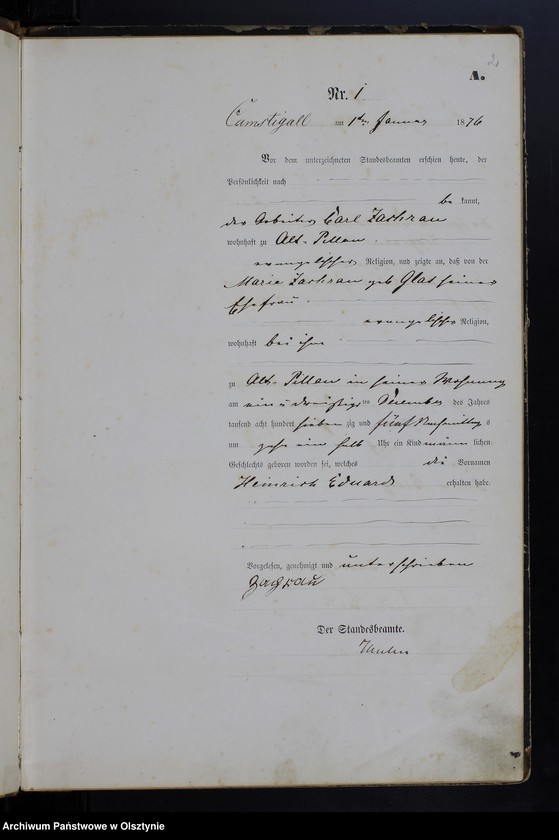 2
A.
Nr. 1
Camstigall am 1ten Januar 1876
Vor dem unterzeichneten Standesbeamten erschien heute, der
Persönlichkeit nach
be kannt,
der Arbeiter Carl Zachrau
wohnhaft zu Alt-Pillau
evangelischer Religion, und zeigte an, daß von der
Marie Zachrau geb Glas seiner
Ehefrau
evangelischer Religion,
wohnhaft bei ihm
zu Alt-Pillau in seiner Wohnung
am ein u dreißigsten Dezember des Jahres
tausend acht hundert sieben zig und fünf Nachmittag s
um zehn ein halb Uhr ein Kind männ lichen
Geschlechts geboren worden sei, welches die Vornamen
Heinrich Eduard erhalten habe.
Vorgelesen, genehmigt und unterschrieben
Zachrau
Der Standesbeamte.
Archiwum Państwowe w Olsztynie